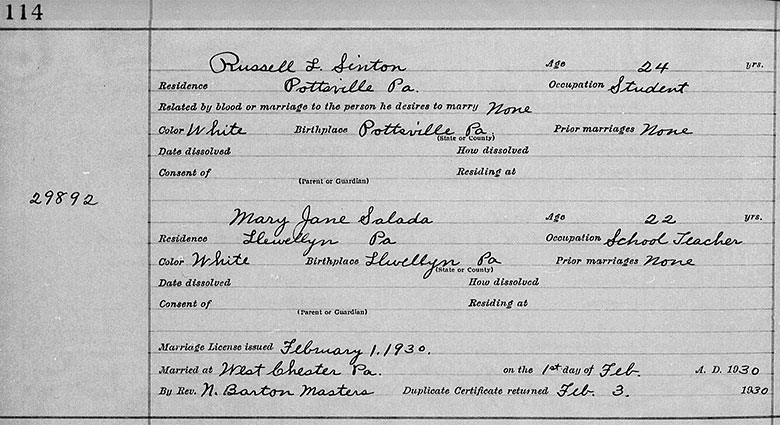 114
Russell L. Sinton Age 24 yrs.
Residence Pottsville Pa. Occupation Student
Related by blood or marriage to the person he desires to marry None
Color White Birthplace Pottsville Pa Prior marriages None
(State or County)
Date dissolved How dissolved
Consent of Residing at
(Parent or Guardian)
29892
Mary Jane Salada Age 22 yrs.
Residence Llewellyn Pa Occupation School Teacher
Color White Birthplace Llwellyn Pa Prior marriages None
(State or County)
Date dissolved How dissolved
Consent of Residing at
(Parent or Guardian)
Marriage License issued February 1. 1930.
Married at West Chester Pa. on the 1st day of Feb. A. D. 1930
By Rev. N. Barton Masters Duplicate Certificate returned Feb. 3. 1930